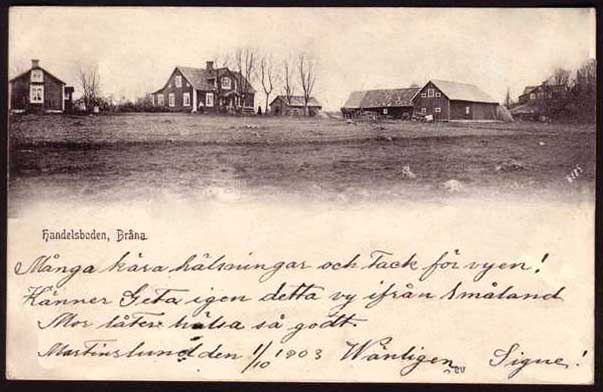 8185
Handelsboden, Bråna.
Många kära hälsningar och Tack för vyen!
Känner Geta igen detta vy ifrån Småland
Mor låter hälsa så godt.
Martinslund den 1/10 1903 Vänligen Signe!